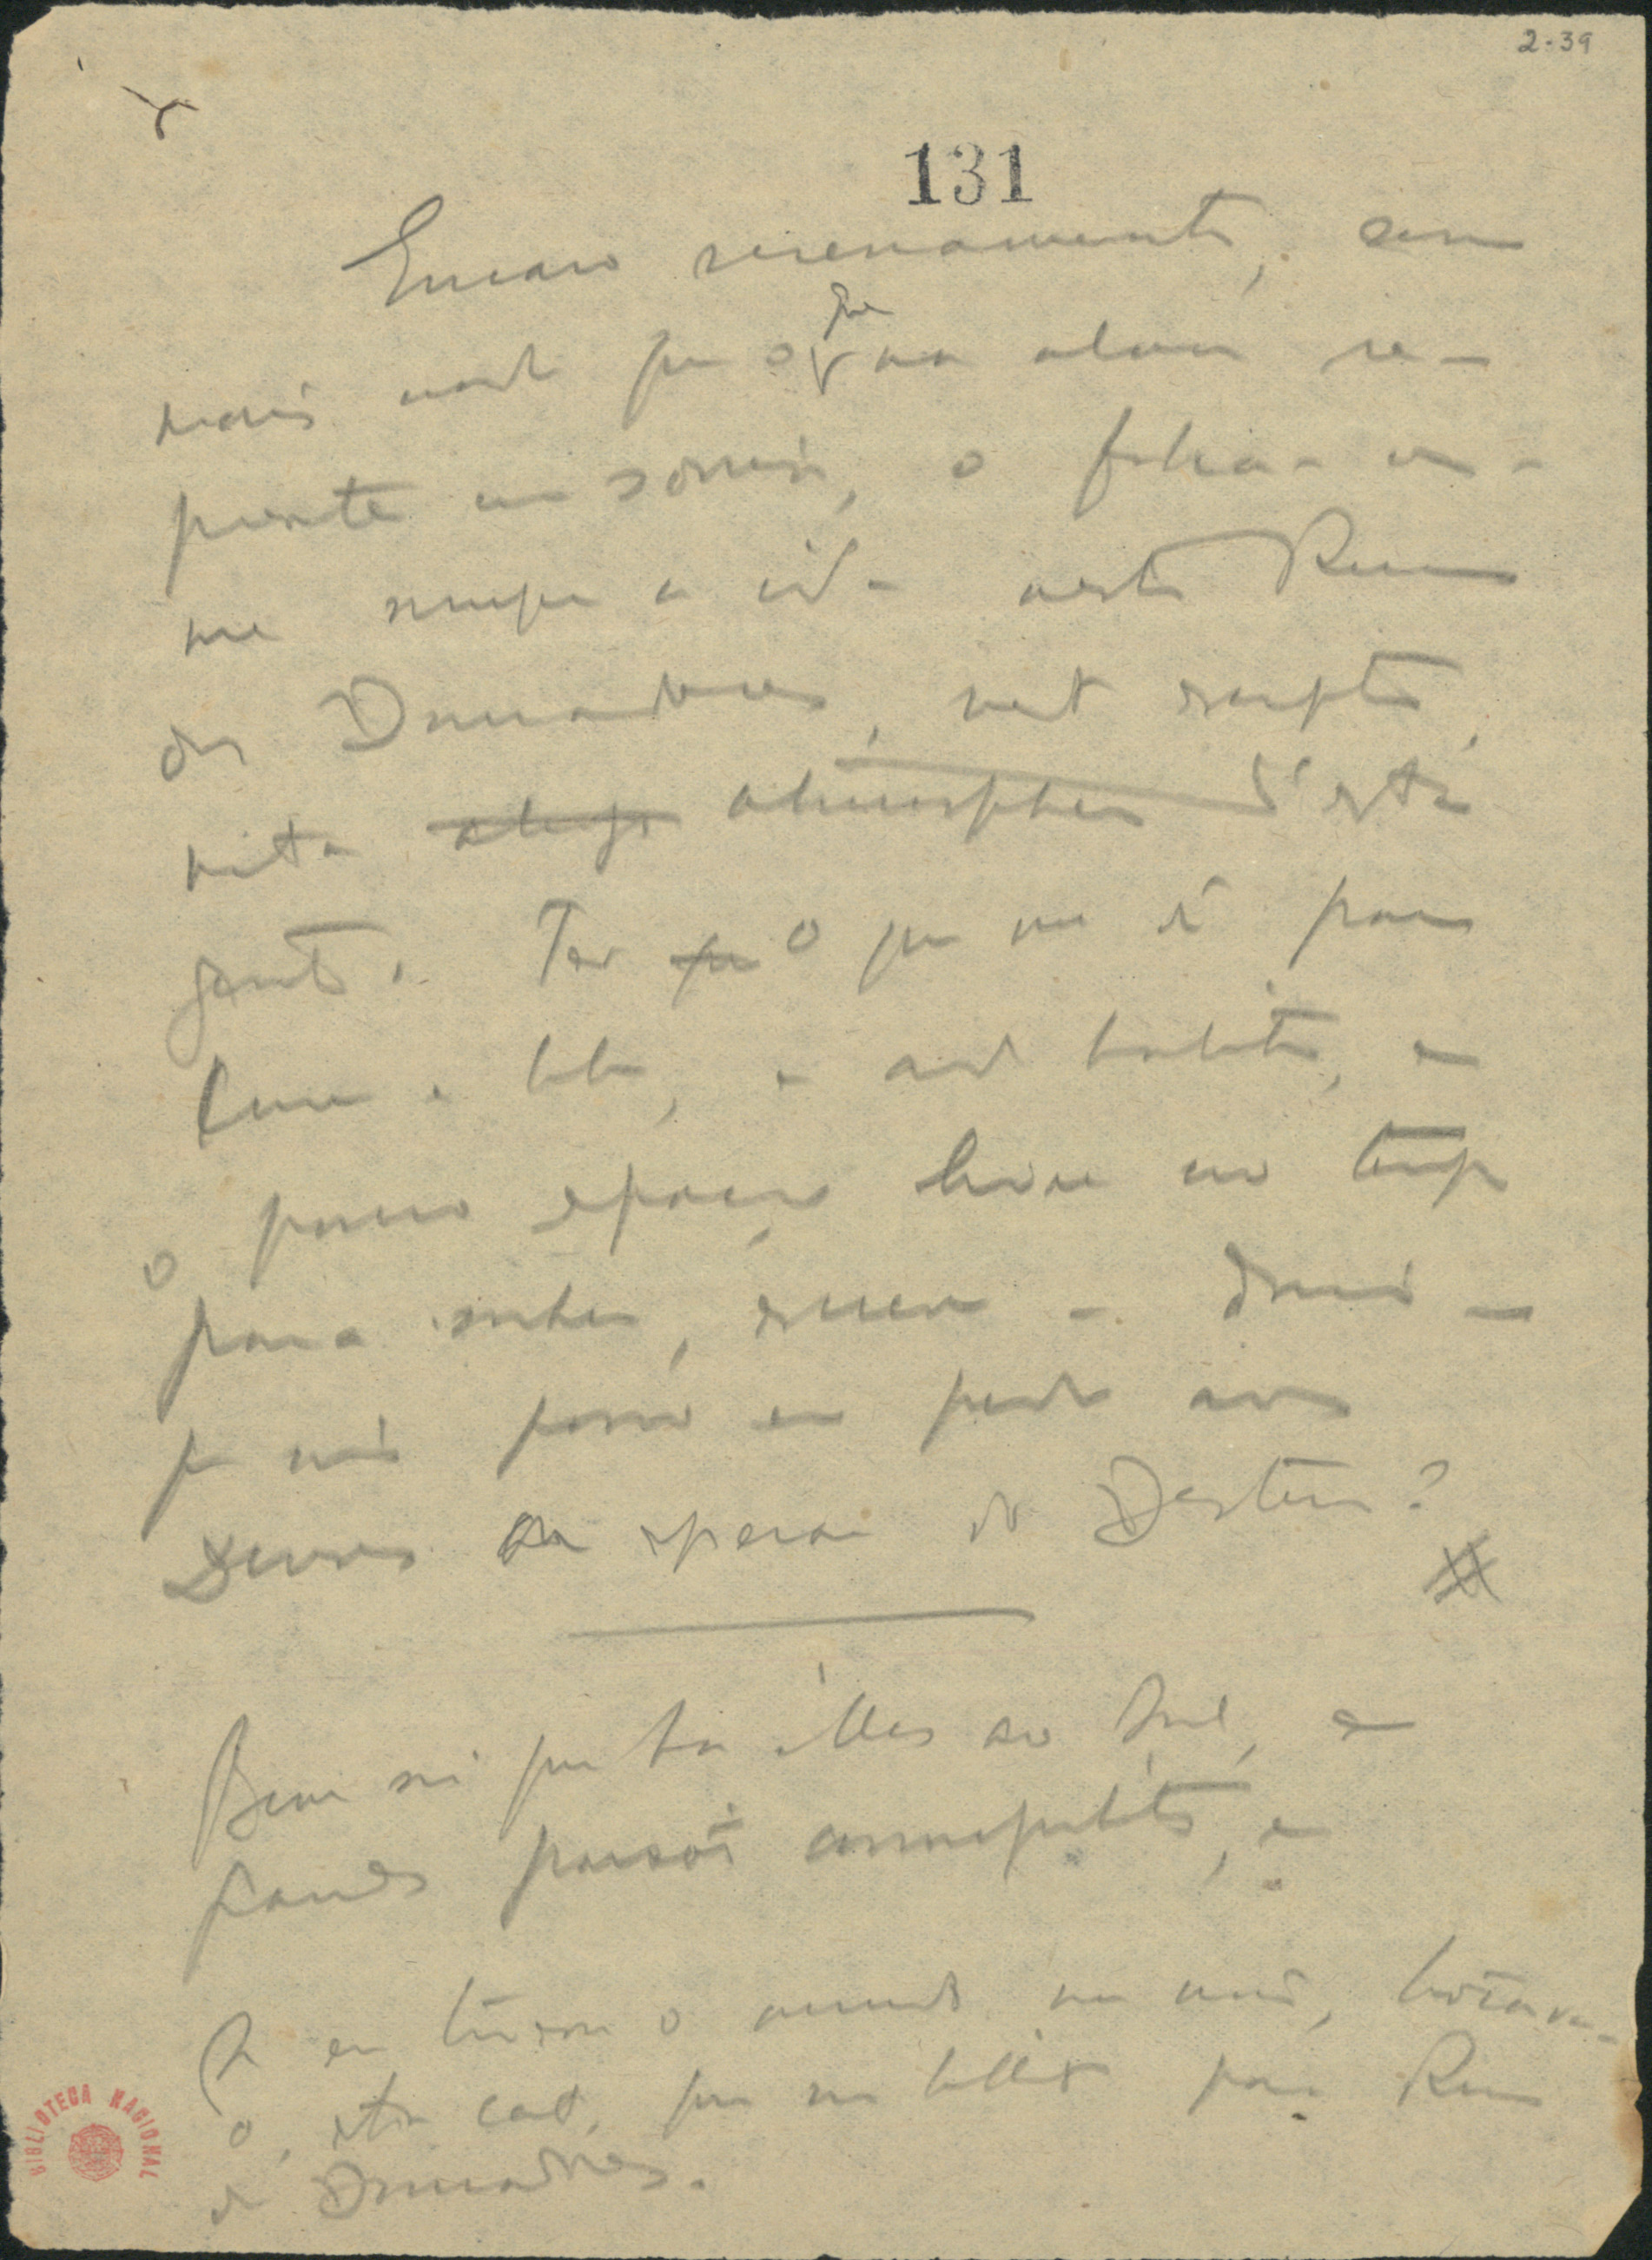 2-39
131
Encaro serenamente, sem
mais nada que o que na alma re-
presente um sorriso, o fechar-se-
me sempre a vida nesta Rua
dos Douradores, neste escriptorio,
nesta atmosphera d'esta
gente. Ter o que me dê para
comer e beber, e onde habite, e
o pouco espaço livre no tempo
para sonhar, escrever – dormir –
que mais posso eu pedir aos
Deuses ou esperar do Destino?
Bem sei que ha ilhas ao Sul, e
grandes paixões cosmopolitas, e
Se eu tivesse o mundo na mão, trocava-
o, estou certo, por um bilhete para Rua
dos Douradores.
BIBLIOTECA NACIONAL